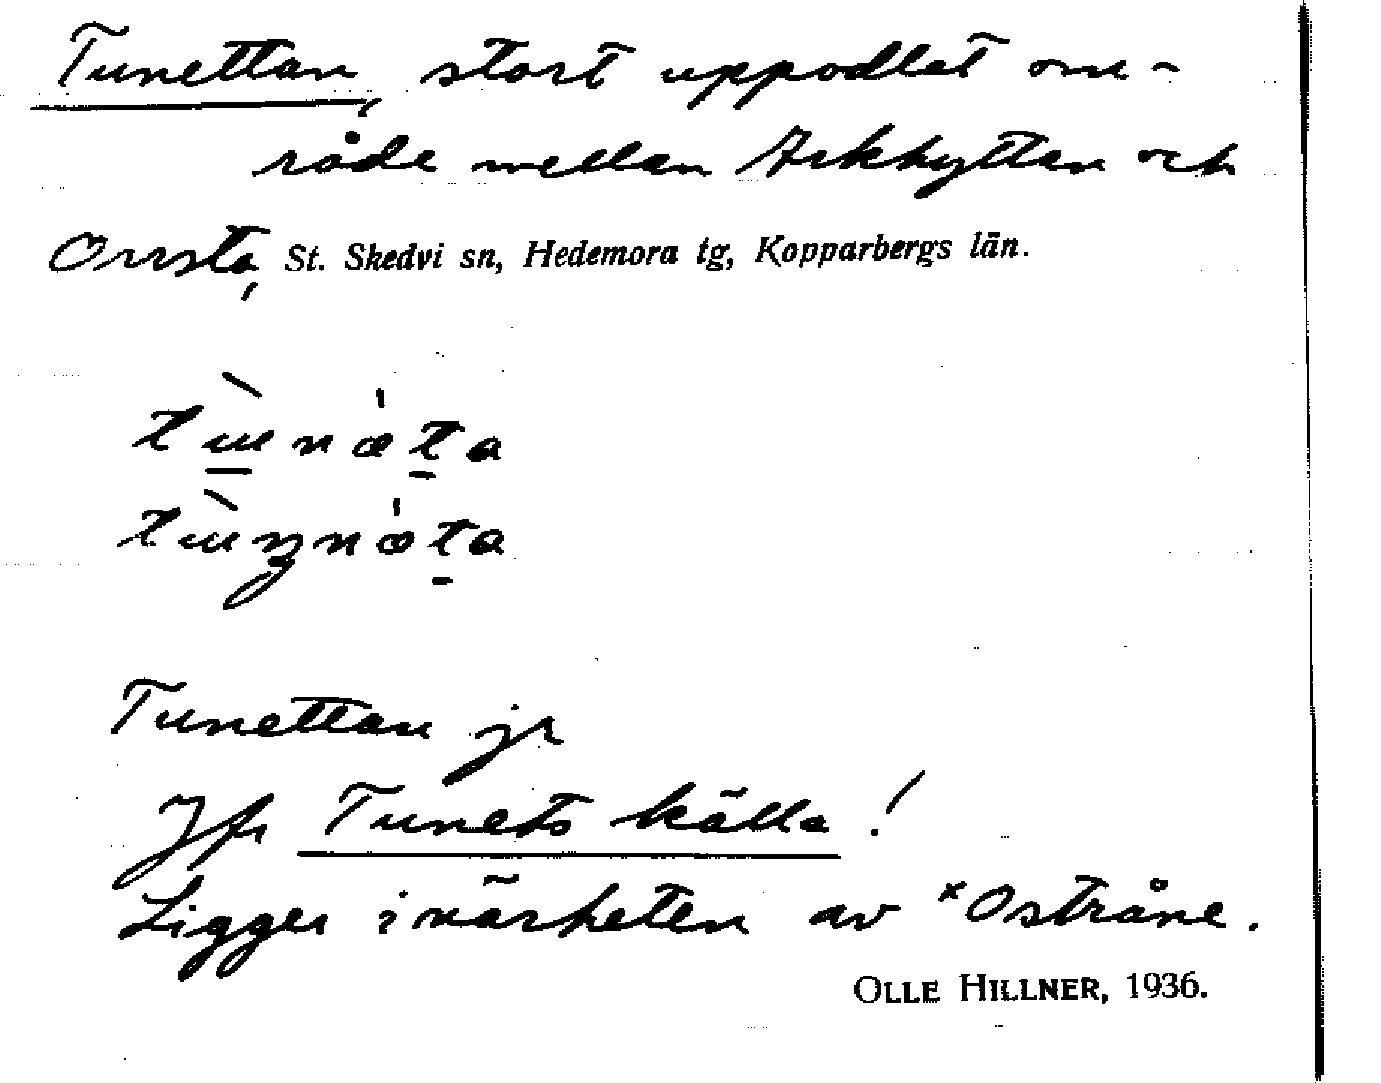 Tunettan, stort uppodlat om-
råde mellan Arkhyttan och
Orrsta, St. Skedvi sn, Hedemora tg, Kopparbergs län.
Tunettan jr
Jfr Tunets källa!
Ligger i närheten av ×Osträne.
OLLE HILLNER, 1936.